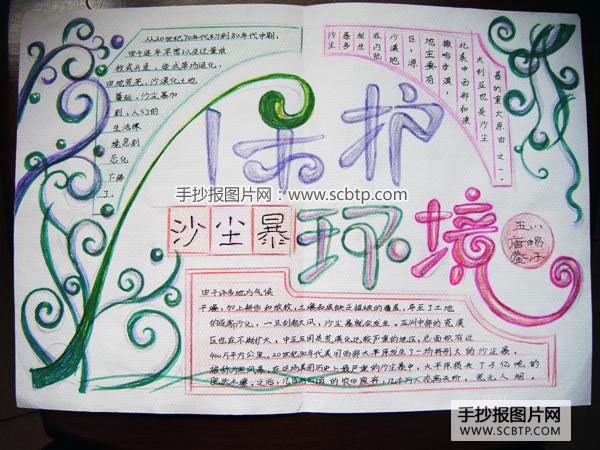 从20世纪70年代初到80年代中期,
由于连年旱灾以及过量放
牧式开垦,造成草场退化,
田地荒芜,沙漠化土地
蔓延,沙尘暴加
剧,人们的
生活环
境急剧
恶化
下降
了.
暴的重大原因之一.
大利亚也是沙尘
北美中西部和澳
撒哈拉漠,
地主要有
区,源
沙漠地
在内陆
发生
暴多
沙尘
保护
手抄报图片网:www.scbtp.com
沙尘暴环境
五(1)
由于许多地方气候
干燥,加上耕作和放牧,土壤和底缺乏植被的覆盖,导至了土地
的逐渐沙化,一旦刮起大风,沙尘暴就会发生,亚洲中部的荒漠
区也在不断扩大,中亚五国是荒漠化比较严重的地区,总面积有近
400万平方公里。20世纪30年代美国西部大平原发生了一场特别大的沙尘暴,
被称为黑风暴,在这场美国历史上最严重的沙尘暴中,大平原损失了3亿吨的
肥沃土壤,之后,几百万公亩的农田废弃,几十万人流离失所,荒无人烟。
手抄报图片网
WWW.SCBTP.COM